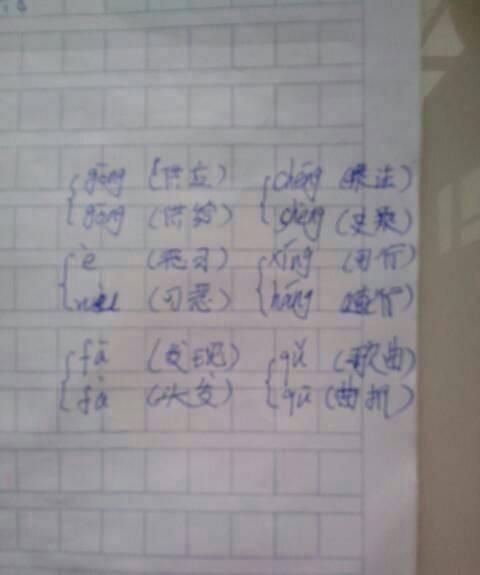 gōng (供应) chéng (乘法)
gōng (供给) shèng (史乘)
è (恶习) xíng (可行)
wù (可恶) háng (行)
fā (发现) qǔ (歌曲)
fà (头发) qū (曲折)